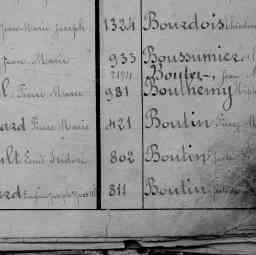 Jean Marie Joseph 1324 Bourdois
Jean Marie 933 Boussumier
2191 Bouter, Jean
Pierre Marie 981 Bouthemy
ard Pierre Marie 421 Boutin Pierre M
ult Louis Isidore 802 Boutin Jules
ard 811 Boutin Jules